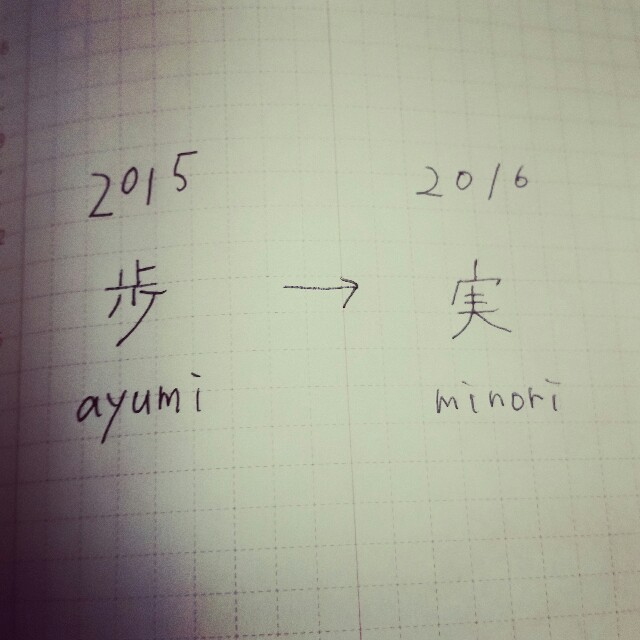 2015
歩
ayumi
→
2016
実
minori